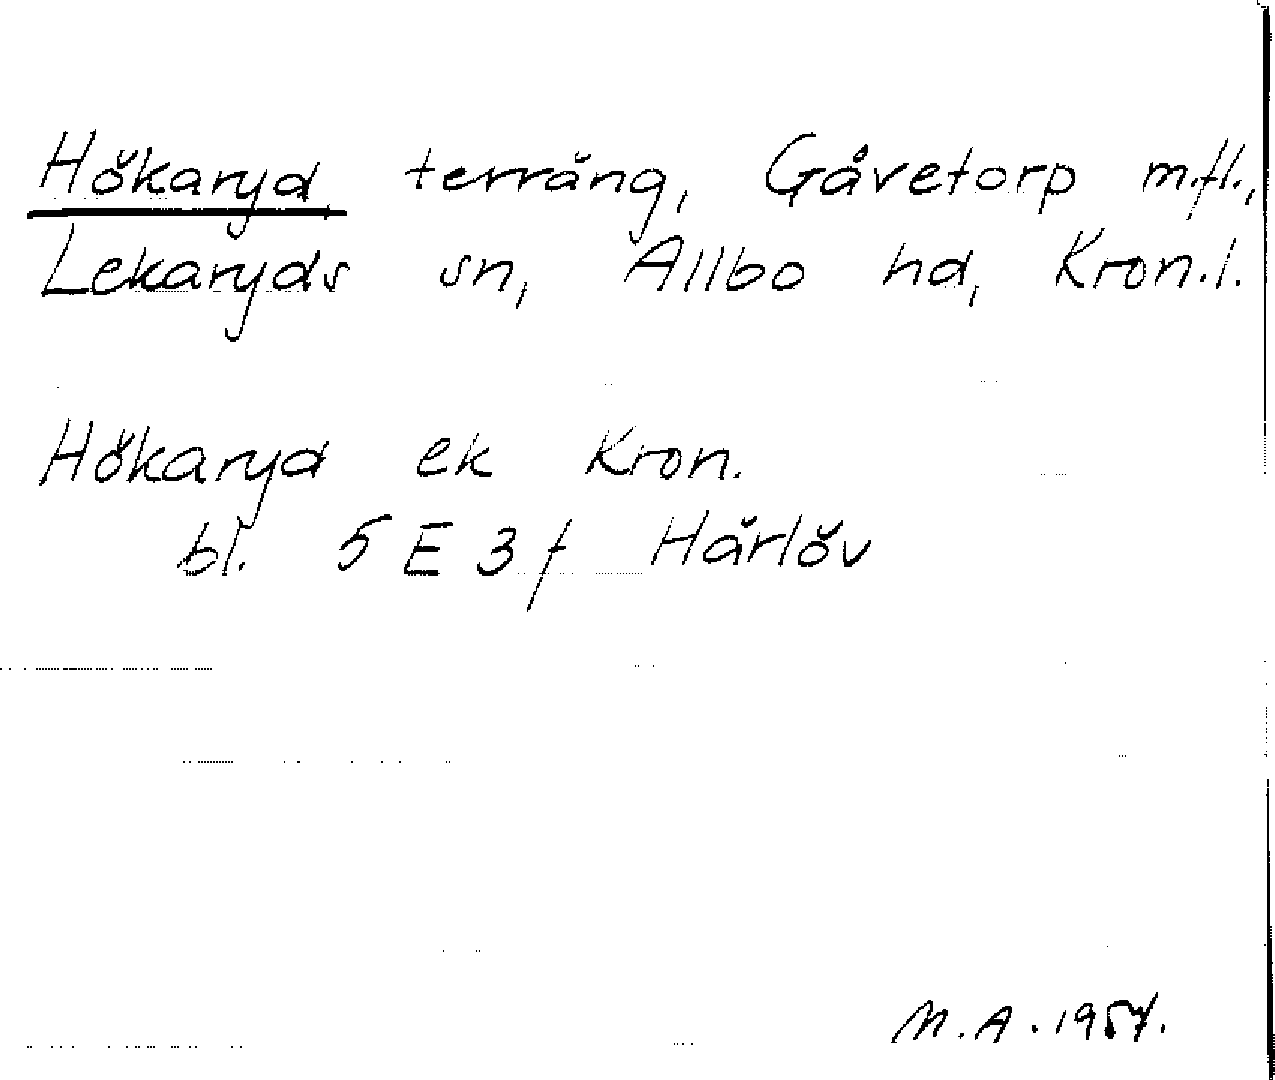 Hökaryd, terräng, Gåvetorp m.fl.,
Lekaryds sn, Allbo hd, Kron.l.
Hökaryd ek Kron.
bl. 5 E 3 f Härlöv
M.A. 1954.